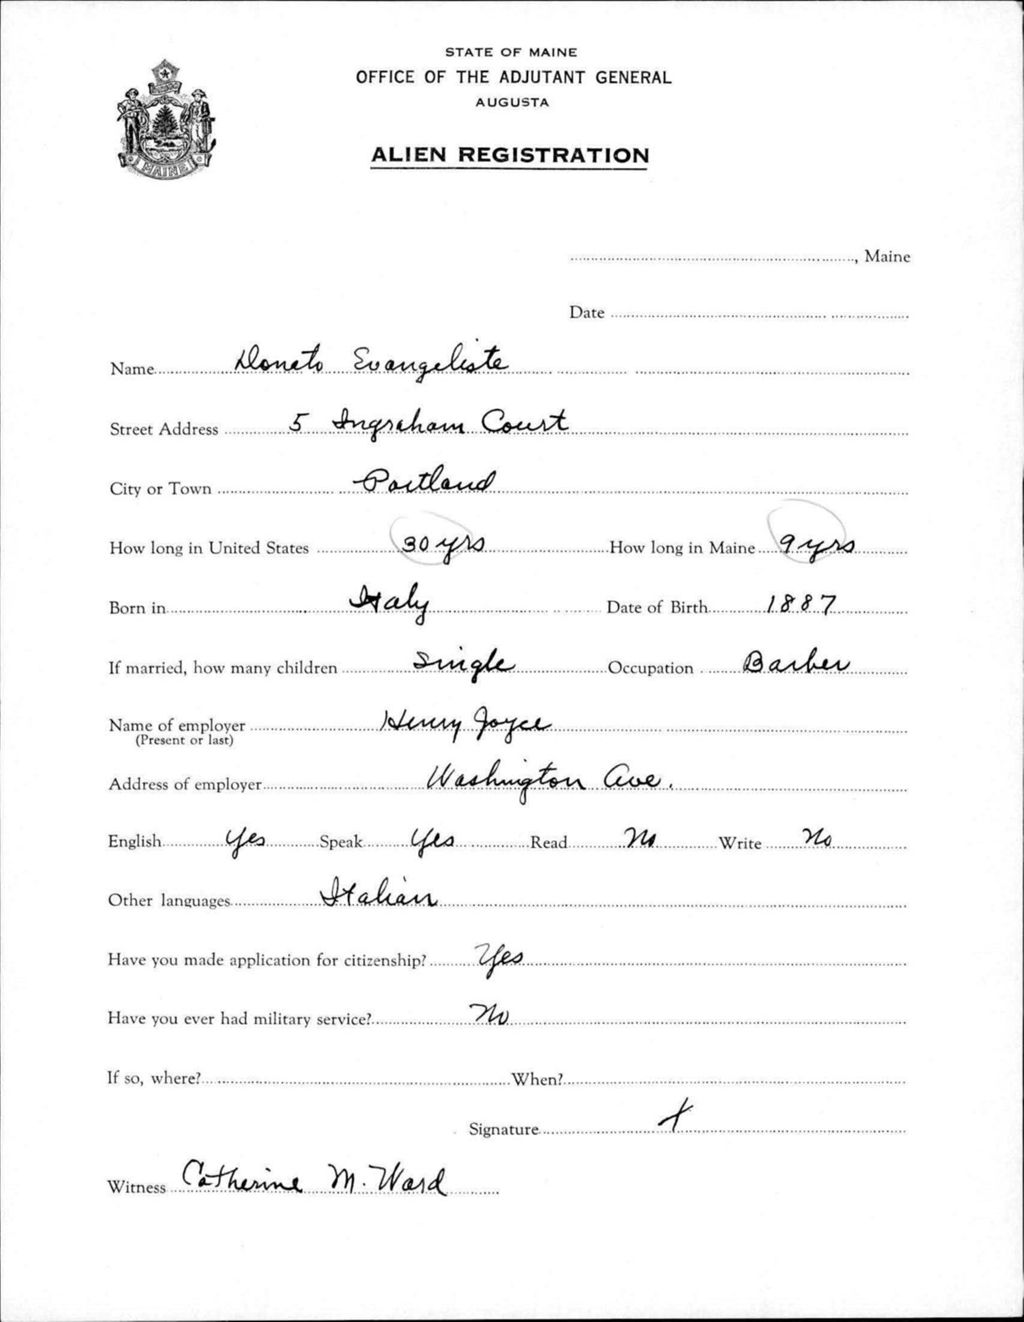 STATE OF MAINE
OFFICE OF THE ADJUTANT GENERAL
AUGUSTA
ALIEN REGISTRATION
MAINE
, Maine
Date
Name Donato Evangeliste
Street Address 5 Ingraham Court
City or Town Portland
How long in United States 30 yrs How long in Maine 9 yrs
Born in Italy Date of Birth 1887
If married, how many children Single Occupation Barber
Name of employer Henry Joyce
(Present or last)
Address of employer Washington Ave.
English Yes Speak Yes Read No Write No
Other languages Italian
Have you made application for citizenship? Yes
Have you ever had military service? No
If so, where? When?
Signature X
Witness Catherine M. Ward